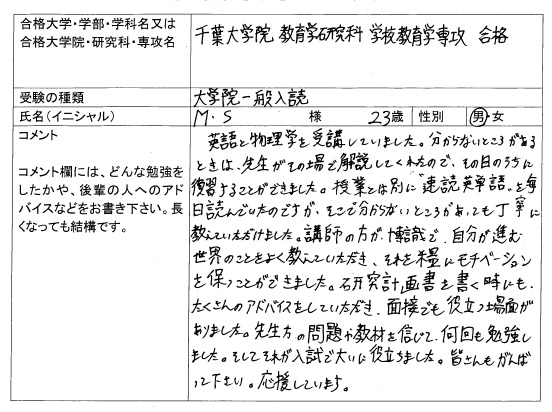 合格大学・学部・学科名又は
合格大学院・研究科・専攻名
千葉大学院 教育学研究科 学校教育学専攻 合格
受験の種類
大学院一般入試
氏名(イニシャル)
M・S 様 23歳 性別 男・女
コメント
コメント欄には、どんな勉強を
したかや、後輩の人へのアド
バイスなどをお書き下さい。長
くなっても結構です。
英語と物理学を受講していました。分からないところがある
ときは、先生がその場で解説してくれたので、その日のうちに
復習することができました。授業とは別に"速読英単語"を毎
日読んでいたのですが、そこで分からないところがあっても丁寧に
教えていただけました。講師の方が、博識で、自分が進む
世界のことをよく教えていただき、それを糧にモチベーション
を保つことができました。研究計画書を書く時にも、
たくさんのアドバイスをしていただき、面接でも役立つ場面が
ありました。先生方の問題や教材を信じて、何回も勉強し
ました。そしてそれが入試で大いに役立ちました。皆さんもがんば
って下さい。応援しています。